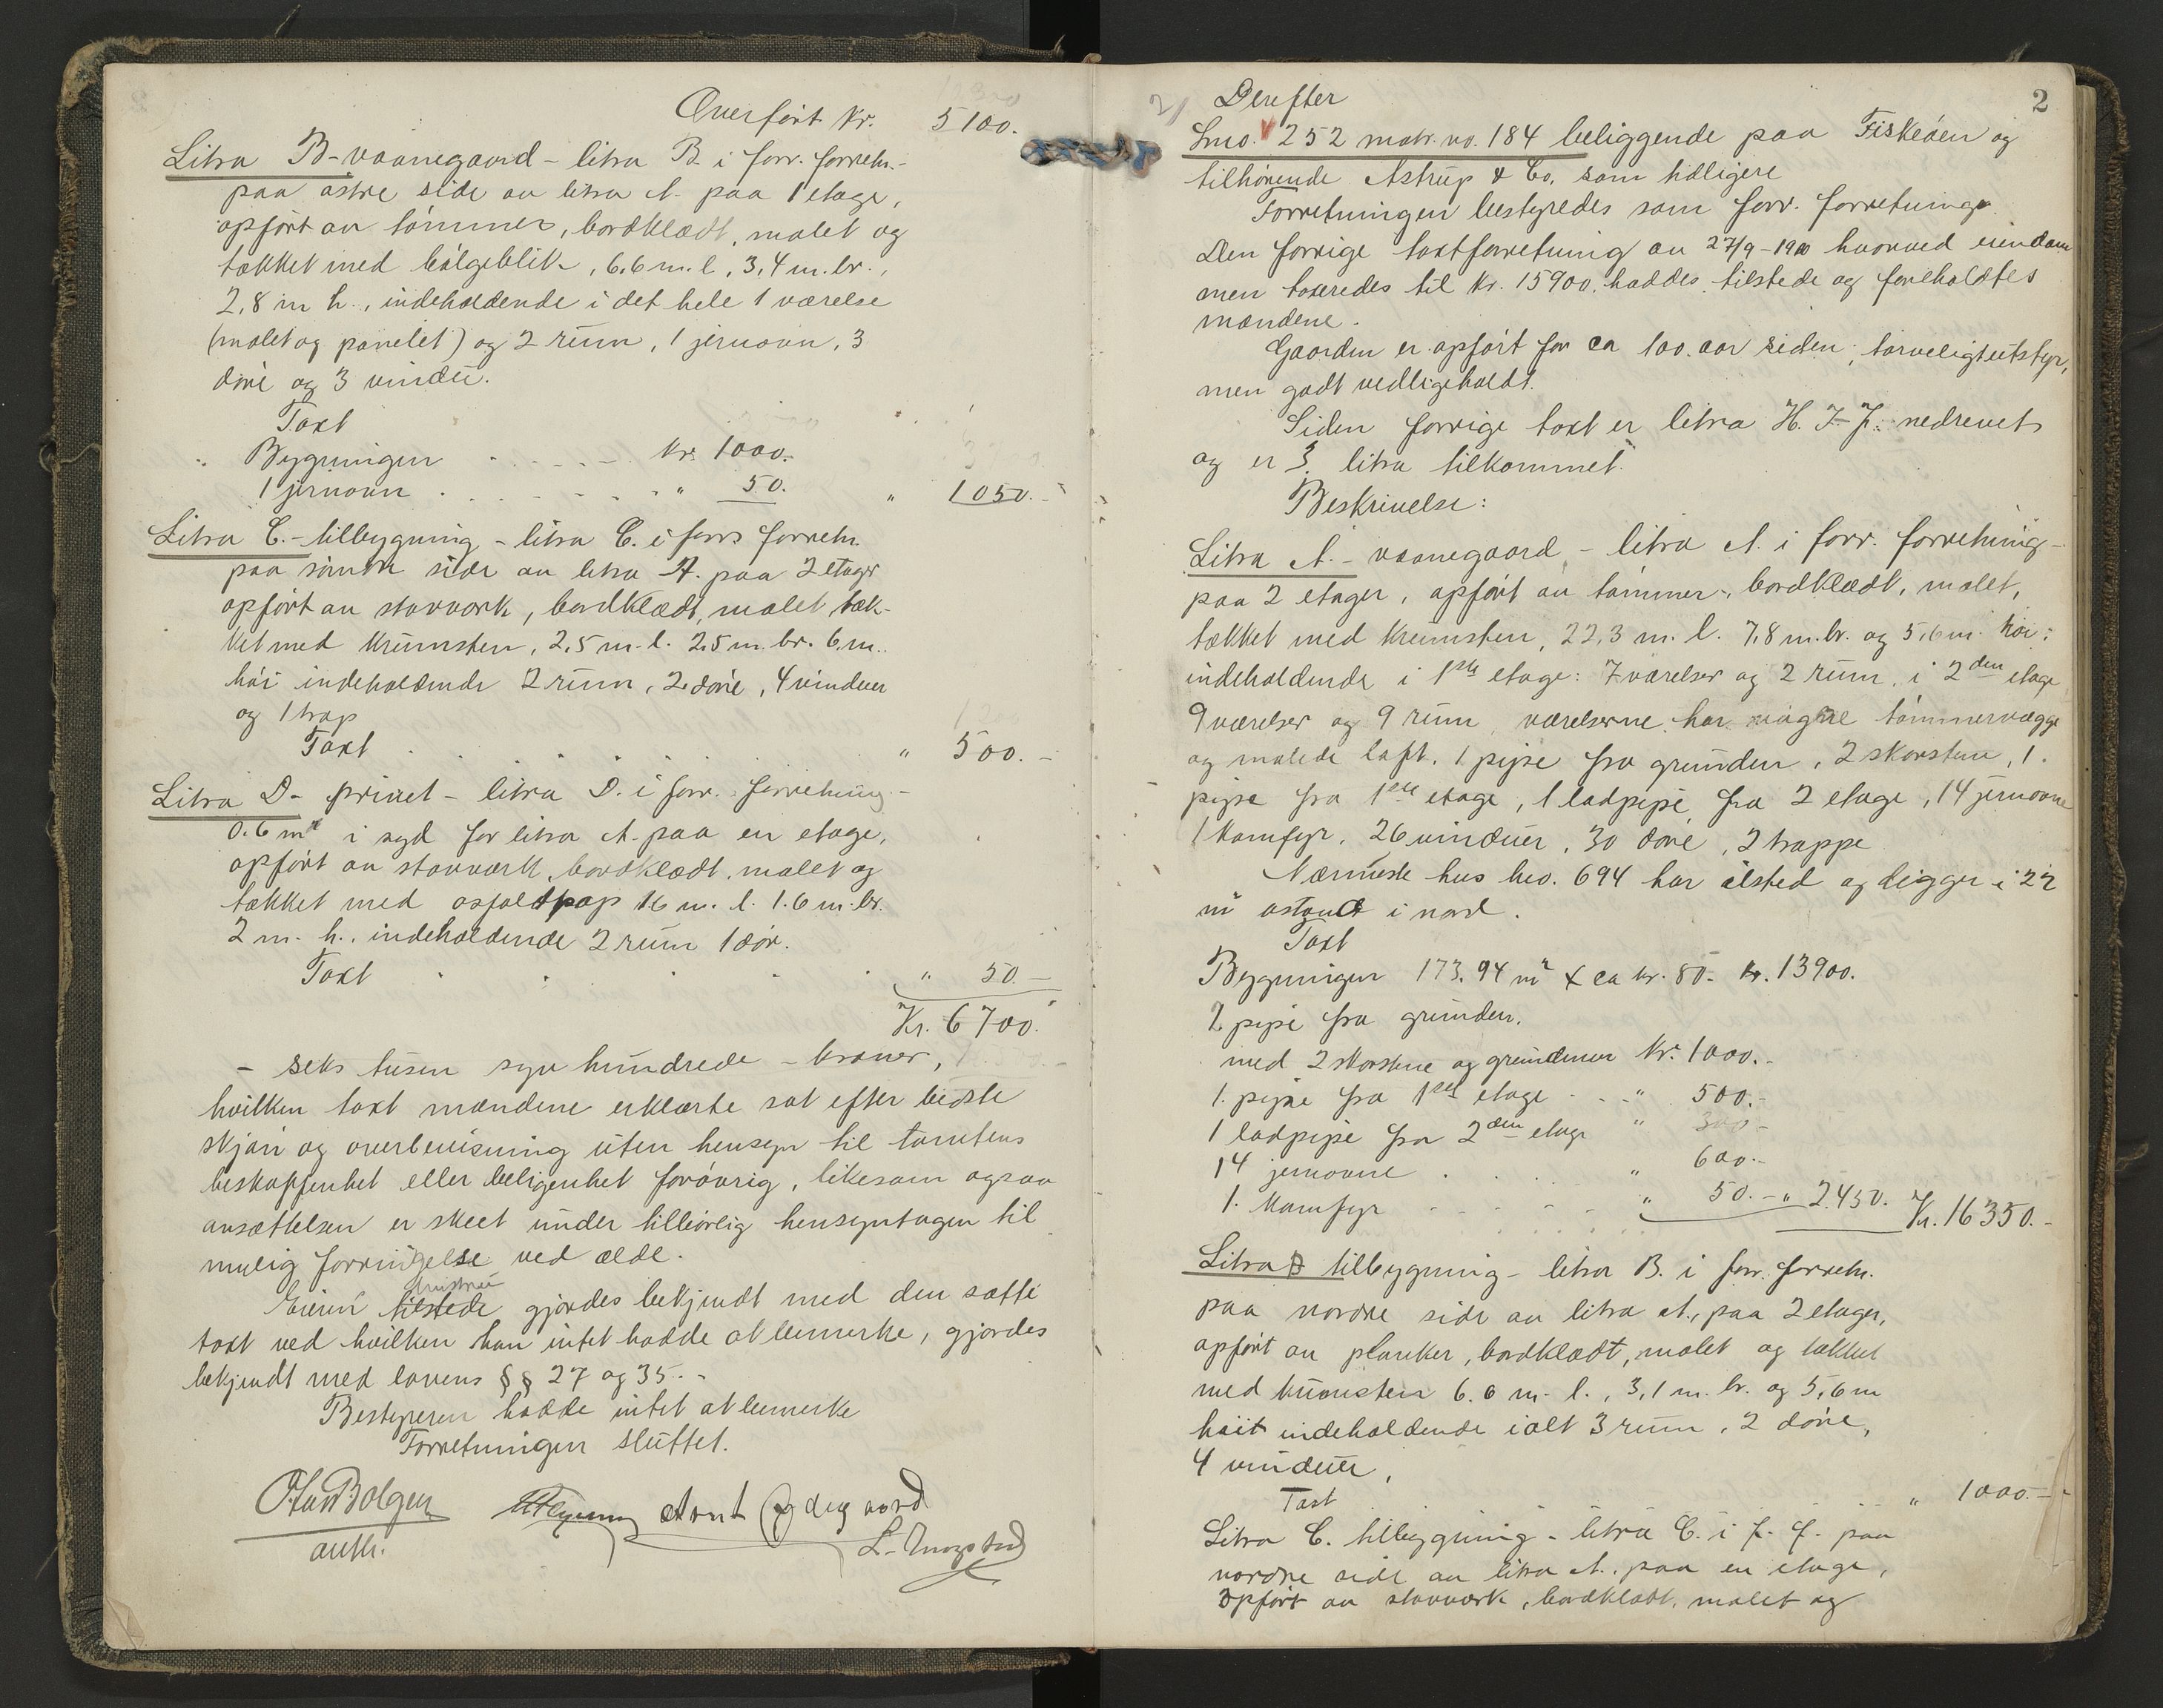 Overført Kr. 5100.
Litra B - vaanegaard - litra B. i forr. forretn. -
paa østre side av litra A. paa 1 etage,
opført av tømmer, bordklædt, malet og
tækket med bølgeblik, 6,6 m. l., 3,4 m. br.,
2,8 m h., indeholdende i det hele 1 værelse
(malet og panelet) og 2 rum, 1 jernovn, 3
døre og 3 vinduer.
Taxt
Bygningen Kr. 1000.
1 jernovn " 50. " 1050. -
Litra C. - tilbygning - litra C. i forr. forretn.
paa samme side av litra A. paa 2 etager
opført av stavverk, bordklædt, malet tæk-
ket med krumsten, 2,5 m. l. 2,5 m. br. 6 m.
høi indeholdende 2 rum, 2 døre, 4 vinduer
og 1 trap
Taxt " 500. -
Litra D - privet - litra D. i forr. forretning -
0.6 m i syd for litra A. paa en etage,
opført av stavverk, bordklædt, malet og
tækket med asfaltpap 1.6 m. l. 1.6 m. br.
2 m. h., indeholdende 2 rum 1 dør.
Taxt " 50. -
Kr. 6700.
- seks tusen syv hundrede - kroner,
hvilken taxt mændene erklærte sat efter bedste
skjøn og overbevisning uten hensyn til tomtens
beskaffenhet eller beliggenhet forøvrig, likesom ogsaa
ansættelsen er skeet under tilbørlig hensyntagen til
mulig forringelse ved ælde.
hustru
Eieren tilstede gjordes bekjendt med den satte
taxt ved hvilken han intet hadde at bemerke, gjordes
bekjendt med lovens §§ 27 og 35. -
Bestyreren hadde intet at bemerke
Forretningen sluttet.
Olav Bolgen Arnt Ødegaard
auth. L.
2
2) Derefter
Lno. 252 matr. no. 184 beliggende paa Fiskeøen og
tilhørende Astrup & Co. som tidligere
Forretningen bestyredes som forr. forretning.
Den forrige taxtforretning av 27/9-1910 hvorved eiendom
men taxeredes til kr. 15900. haddes tilstede og foreholdtes
mændene.
Gaarden er opført for ca 100. aar siden, tarveligt utstyr,
men godt vedligeholdt.
Siden forrige taxt er litra H. I - J. nedrevet
og er 3 litra tilkommet.
Beskrivelse:
Litra A. - vaanegaard - litra A. i forr. forretning -
paa 2 etager, opført av tømmer, bordklædt, malet,
tækket med krumsten, 22,3 m. l. 7,8 m. br. og 5,6 m. høi;
indeholdende i 1ste etage: 7 værelser og 2 rum, i 2den etage
9 værelser og 9 rum, værelserne har nøgne tømmervægge
og malede loft, 1 pipe fra grunden, 2 skorstene, 1.
pipe fra 1ste etage, 1 ladpipe fra 2 etage, 14 jernovne
1 komfyr, 26 vinduer, 30 døre, 2 trappe
Nærmeste hus lno. 694 har ilsted og ligger i 22
m avstand i nord.
Taxt
Bygningen 173.94 m² x ca kr. 80.- kr. 13900.
1 pipe fra grunden,
med 2 skorstene og grundmur Kr. 1000. -
1. pipe fra 1ste etage " 500. -
1 ladpipe fra 2den etage " 300 -
14 jernovne " 600. -
1. Komfyr " 50. - " 2450. Kr. 16350. -
Litra B tilbygning - litra B. i forr. forretn.
paa nordre side av litra A., paa 2 etager,
opført av planker, bordklædt, malet og tækket
med krumsten 6.0 m. l., 3,1 m. br. og 5,6 m
høit indeholdende ialt 3 rum, 2 døre,
4 vinduer,
Taxt " 1000. -
Litra C. tilbygning - litra C. i f. f. paa
nordre side av litra A., paa en etage,
opført av stavverk, bordklædt, malet og